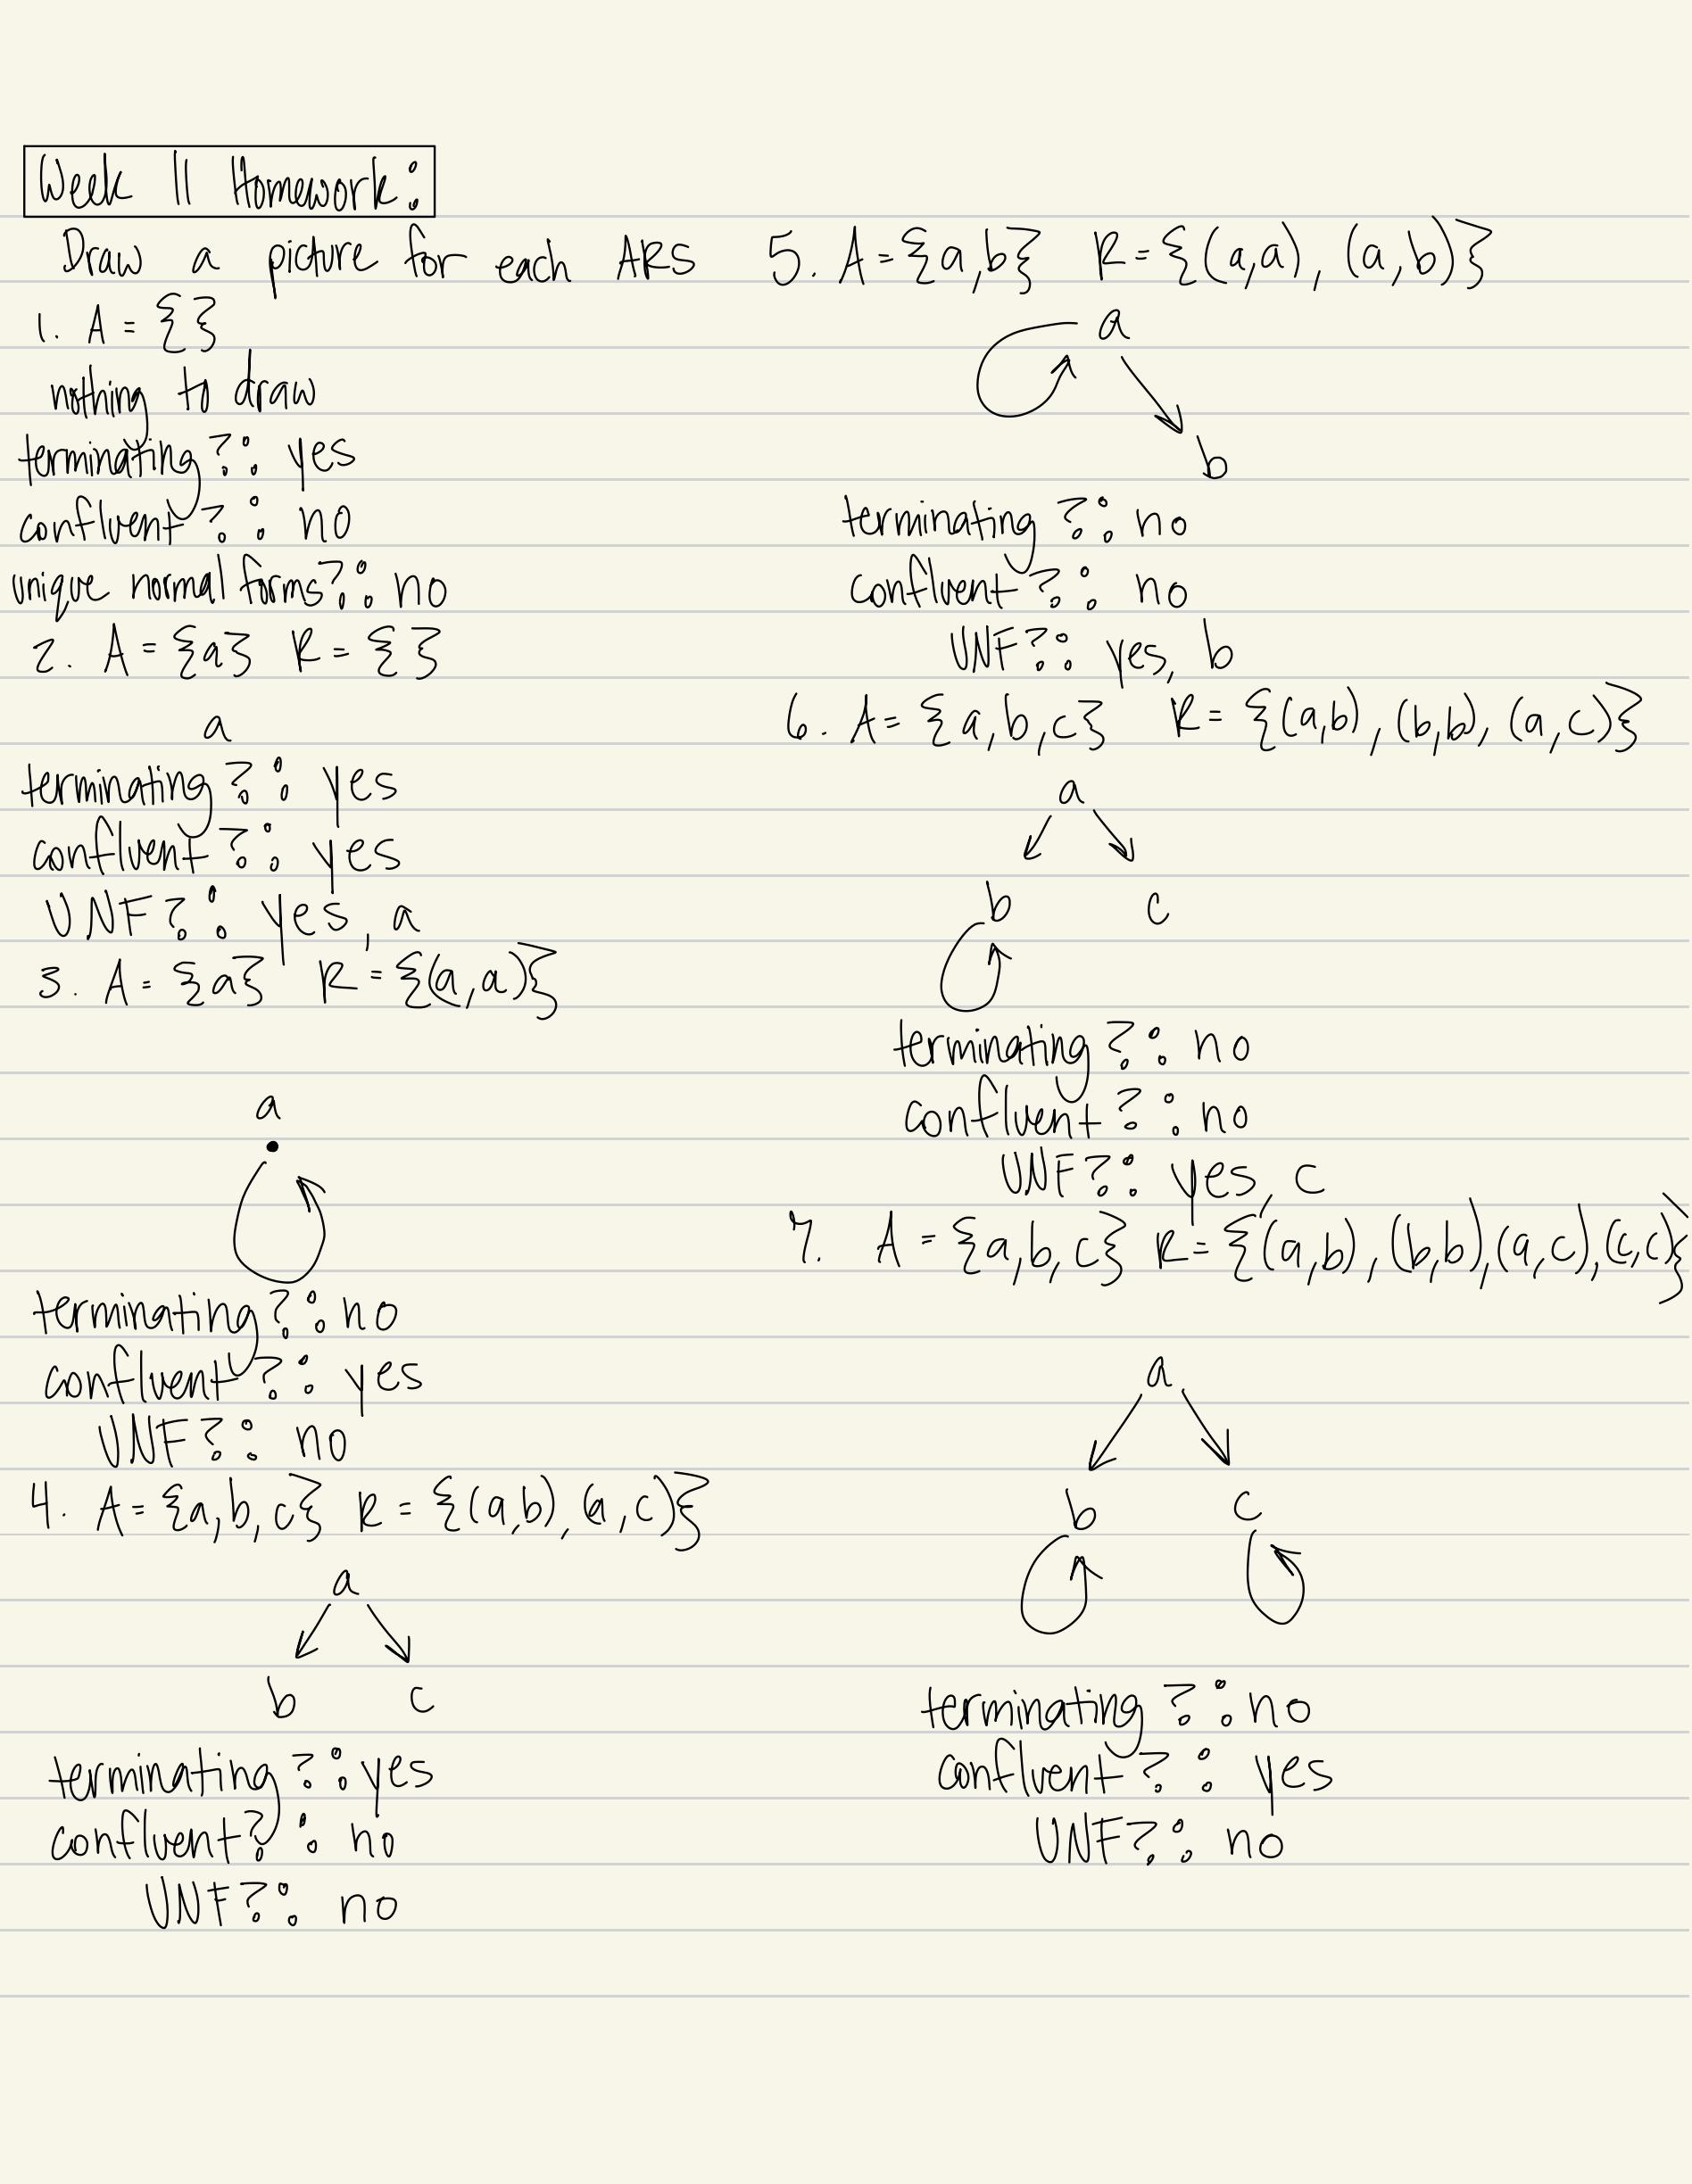 Week 11 Homework:
Draw a picture for each ARS
1. A = {}
nothing to draw
terminating?: yes
confluent?: no
unique normal forms?: no
2. A = {a} R = { }
a
terminating?: yes
confluent?: yes
UNF?: yes, a
3. A = {a} R = {(a,a)}
a
terminating?: no
confluent?: yes
UNF?: no
4. A = {a,b,c} R = {(a,b), (a,c)}
a
b c
terminating?: yes
confluent?: no
UNF?: no
5. A = {a,b} R = {(a,a), (a,b)}
a
b
terminating?: no
confluent?: no
UNF?: yes, b
6. A = {a,b,c} R = {(a,b), (b,b), (a,c)}
a
b c
terminating?: no
confluent?: no
UNF?: yes, c
7. A = {a,b,c} R = {(a,b), (b,b), (a,c), (c,c)}
a
b c
terminating?: no
confluent?: yes
UNF?: no